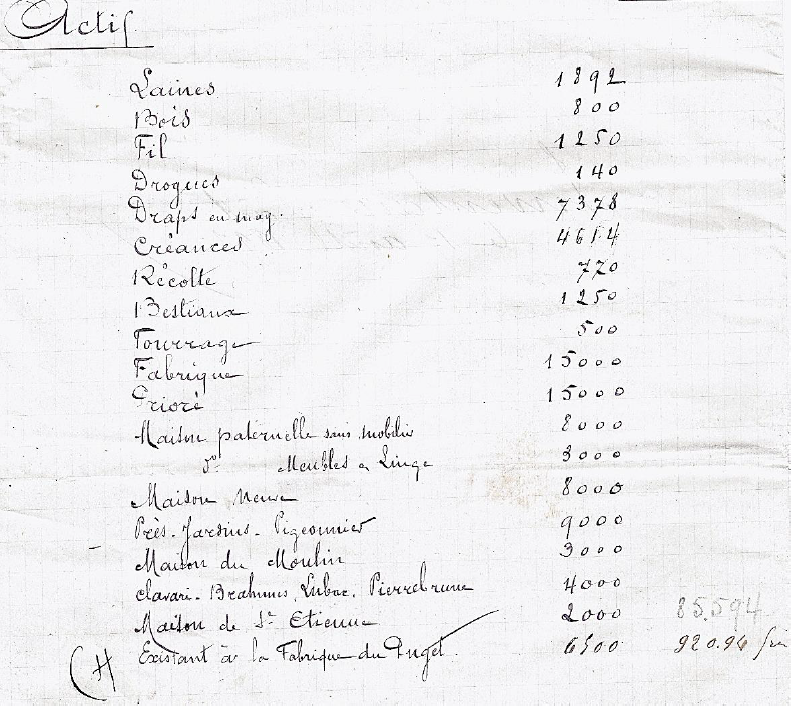 Actif
Laines 1892
Bois 800
Fil 1250
Drogues 140
Draps en mag. 7378
Créances 4614
Récolte 770
Bestiaux 1250
Fourrage 500
Fabrique 15000
Prioré 15000
Maison paternelle sans mobilier 8000
do Meubles & Linge 3000
Maison Neuve 8000
- Près. Jardins. Pigeonnier 9000
Maison du Moulin 3000
Clavari. Brahmes. Lubac. Pierrebrune 4000
Maison de St Etienne 2000 85.594
(H Existant à la Fabrique du Puget. 6500 920.94